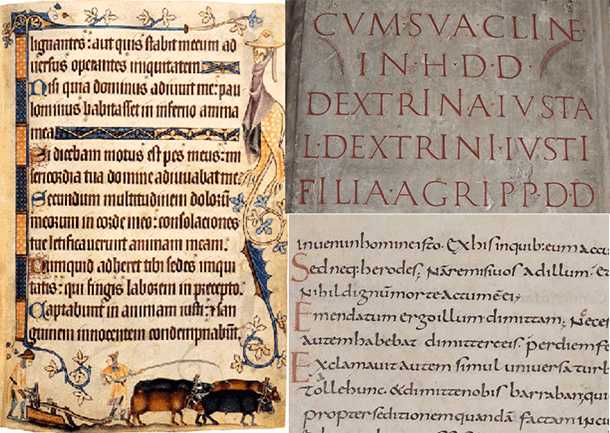 lignantes: aut quis stabit mecum ad
versus operantes iniquitatem
Nisi quia dominus adiuvit me: pau
lominus habitasset in inferno anima
mea
Si dicebam motus est pes meus: mi
sericordia tua domine adiuvabat me
Secundum multitudinem dolorū
meorum in corde meo: consolaciones
tue letificaverunt animam meam.
Numquid adheret tibi sedes iniqui
tatis: qui fingis laborem in precepto.
Captabunt in animam iusti: ⁊ san
guinem innocentem condempnabūt.
CVM·SVA CLINE·
IN·H·D·D·
DEXTRINA·IVSTA
L·DEXTRINI·IVSTI
FILIA·AGRIPP·D·D
inveni in homine isto. Ex his in quib: eum accu
Sed neq: herodes; Nam remisi vos ad illum. Et
Nihil dignum morte actum ē ei;
Emendatum ergo illum dimittam; Neces
autem habebat dimittere eis. per diem fe
Exclamavit autem simul universa turb
Tolle hunc. & dimitte nobis barrabanqu
propter seditionem quandā factam in